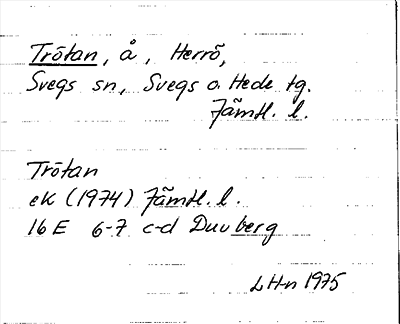 Trötan, å, Herrö,
Svegs sn, Svegs o. Hede tg.
Jämtl. l.
Trötan
ek (1974) Jämtl. l.
16 E 6-7 c-d Duvberg
LH-n 1975